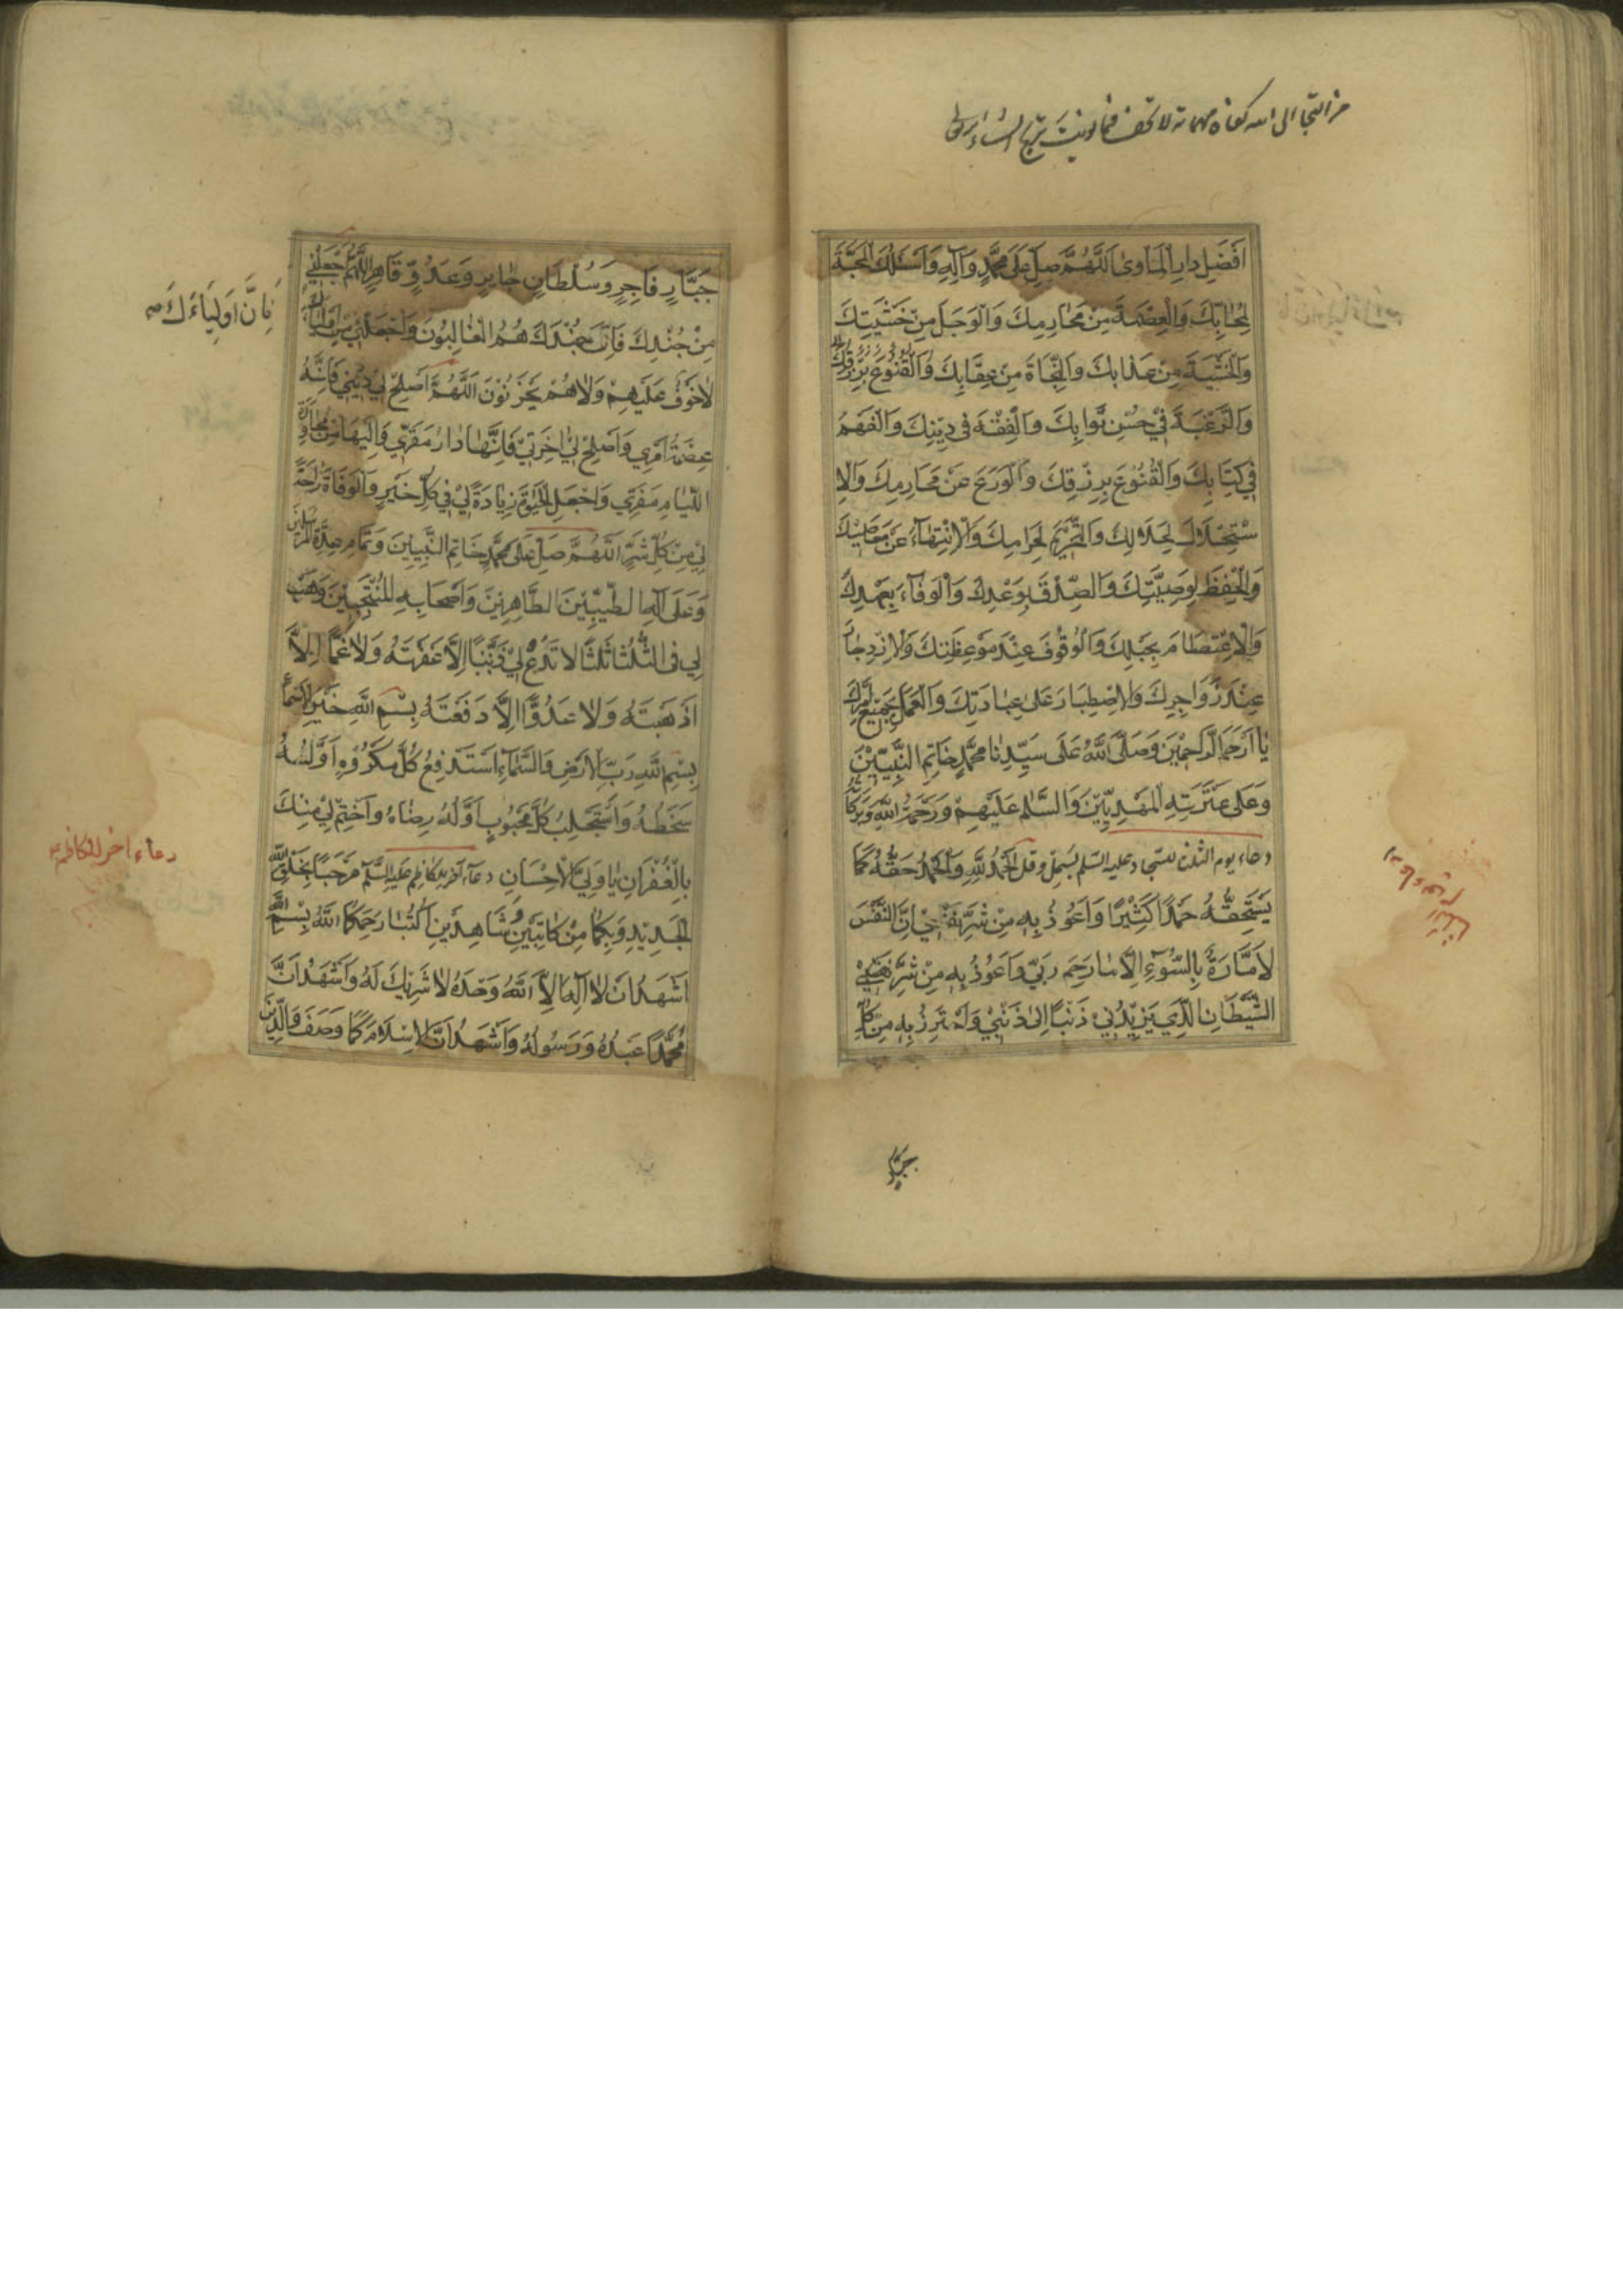 من التجا الى الله كفاه مهماته
اَفْضَلِ دارِ الْمَاوىٰ اَللَّهُمَّ صَلِّ عَلىٰ مُحَمَّدٍ وَآلِهِ وَاَسْئَلُكَ الْمَحَبَّةَ
لِمَحٰابِّكَ وَالْعِصْمَةَ مِنْ مَحٰارِمِكَ وَالْوَجَلَ مِنْ خَشْيَتِكَ
وَالْخَشْيَةَ مِنْ عَذٰابِكَ وَالنَّجَاةَ مِنْ عِقَابِكَ وَالْقُنُوعَ بِرِزْقِكَ
وَالرَّغْبَةَ فِي حُسْنِ ثَوَابِكَ وَالْفِقْهَ فِي دِينِكَ وَالْفَهْمَ
فِي كِتَابِكَ وَالْقُنُوعَ بِرِزْقِكَ وَالْوَرَعَ عَنْ مَحَارِمِكَ وَالاِ
سْتِحْلاَلَ لِحَلاَلِكَ وَالتَّحْرِيمَ لِحَرَامِكَ وَالْاِنْتِهَاءَ عَنْ مَعَاصِيكَ
وَالْحِفْظَ لِوَصِيَّتِكَ وَالصِّدْقَ بِوَعْدِكَ وَالْوَفَاءَ بِعَهْدِكَ
وَالْاِعْتِصَامَ بِحَبْلِكَ وَالْوُقُوفَ عِنْدَ مَوْعِظَتِكَ وَالاِزْدِجٰارَ
عِنْدَ زَوَاجِرِكَ وَالاِصْطِبَارَ عَلىٰ عِبَادَتِكَ وَالْعَمَلَ بِجَمِيعِ اَمْرِكَ
يٰا اَرْحَمَ الرَّاحِمِينَ وَصَلَّى اللَّهُ عَلَى سَيِّدِنٰا مُحَمَّدٍ خَاتِمِ النَّبِيِّينَ
وَعَلَى عِتْرَتِهِ الْمَهْدِيِّينَ وَالسَّلٰمُ عَلَيْهِمْ وَرَحْمَةُ اللَّهِ وَبَرَكَاتُهُ
دعاء يوم الثلثا للسجاد عليه السلم بسمل وقل اَلْحَمْدُ لِلَّهِ وَالْحَمْدُ حَقُّهُ كَمَا
يَسْتَحِقُّهُ حَمْدًا كَثِيْرًا وَاَعُوذُ بِهِ مِنْ شَرِّ نَفْسِي اِنَّ النَّفْسَ
لاَمَّارَةٌ بِالسُّوءِ اِلَّا مٰا رَحِمَ رَبِّي وَاَعُوذُ بِهِ مِنْ شَرِّ
الشَّيْطَانِ الَّذِي يَزِيْدُنِي ذَنْبًا اِلىٰ ذَنْبِي وَاَحْتَرِزُ بِهِ مِنْ كُلِّ
جبار
جَبَّارٍ فَاجِرٍ وَسُلْطَانٍ جٰايِرٍ وَعَدُوٍّ قَاهِرٍ اللَّهُمَّ اجْعَلْنِي
مِنْ جُنْدِكَ فَاِنَّ جُنْدَكَ هُمُ الْغٰالِبُونَ وَاجْعَلْنِي مِنْ اَوْلِيَائِكَ
فَاِنَّ اَوْلِيَاءَكَ صح
لاٰ خَوْفٌ عَلَيْهِمْ وَلاٰ هُمْ يَحْزَنُوْنَ اَللَّهُمَّ اَصْلِحْ لِي دِيْنِي فَاِنَّهُ
عِصْمَةُ اَمْرِي وَاَصْلِحْ لِي اٰخِرَتِي فَاِنَّهٰا دَارُ مَقَرِّي وَاِلَيْهَا مِنْ مُجَاوَرَةِ
اللِّئٰامِ مَفَرِّي وَاجْعَلِ الْحَيٰوةَ زِيَادَةً لِي فِي كُلِّ خَيْرٍ وَالْوَفَاةَ رَاحَةً
لِي مِنْ كُلِّ شَرٍّ اَللَّهُمَّ صَلِّ عَلىٰ مُحَمَّدٍ خَاتِمِ النَّبِيِّينَ وَتَمَامِ عِدَّةِ الْمُرْسَلِينَ
وَعَلَى آلِهِ الطَّيِّبِيْنَ الطَّاهِرِيْنَ وَاَصْحَابِهِ الْمُنْتَجَبِيْنَ وَهَبْ
لِي فِي الثُّلَثَا ثَلٰثًا لاٰ تَدَعْ لِي ذَنْبًا اِلَّا غَفَرْتَهُ وَلاٰ غَمًّا اِلَّا
اَذْهَبْتَهُ وَلاٰ عَدُوًّا اِلَّا دَفَعْتَهُ بِسْمِ اللَّهِ خَيْرِ الْاَسْمَاءِ
بِسْمِ اللَّهِ رَبِّ الْاَرْضِ وَالسَّمَاءِ اَسْتَدْفِعُ كُلَّ مَكْرُوهٍ اَوَّلُهُ
سَخَطُهُ وَاَسْتَجْلِبُ كُلَّ مَحْبُوبٍ اَوَّلُهُ رِضٰاهُ وَاخْتِمْ لِي مِنْكَ
بِالْغُفْرَانِ يٰا وَلِيَّ الْاِحْسَانِ دعاء آخر للكاظم عليه السلم مَرْحَبًا بِخَلْقِ اللَّهِ
دعاء اخر للكاظم ع
الْجَدِيْدِ وَبِكُمَا مِنْ كَاتِبَيْنِ وَشَاهِدَيْنِ اُكْتُبٰا رَحِمَكُمَا اللَّهُ بِسْمِ اللَّهِ
اَشْهَدُ اَنْ لاٰ اِلٰهَ اِلَّا اللَّهُ وَحْدَهُ لاٰ شَرِيْكَ لَهُ وَاَشْهَدُ اَنَّ
مُحَمَّدًا عَبْدُهُ وَرَسُولُهُ وَاَشْهَدُ اَنَّ الْاِسْلاٰمَ كَمَا وَصَفَ وَالدِّيْنَ